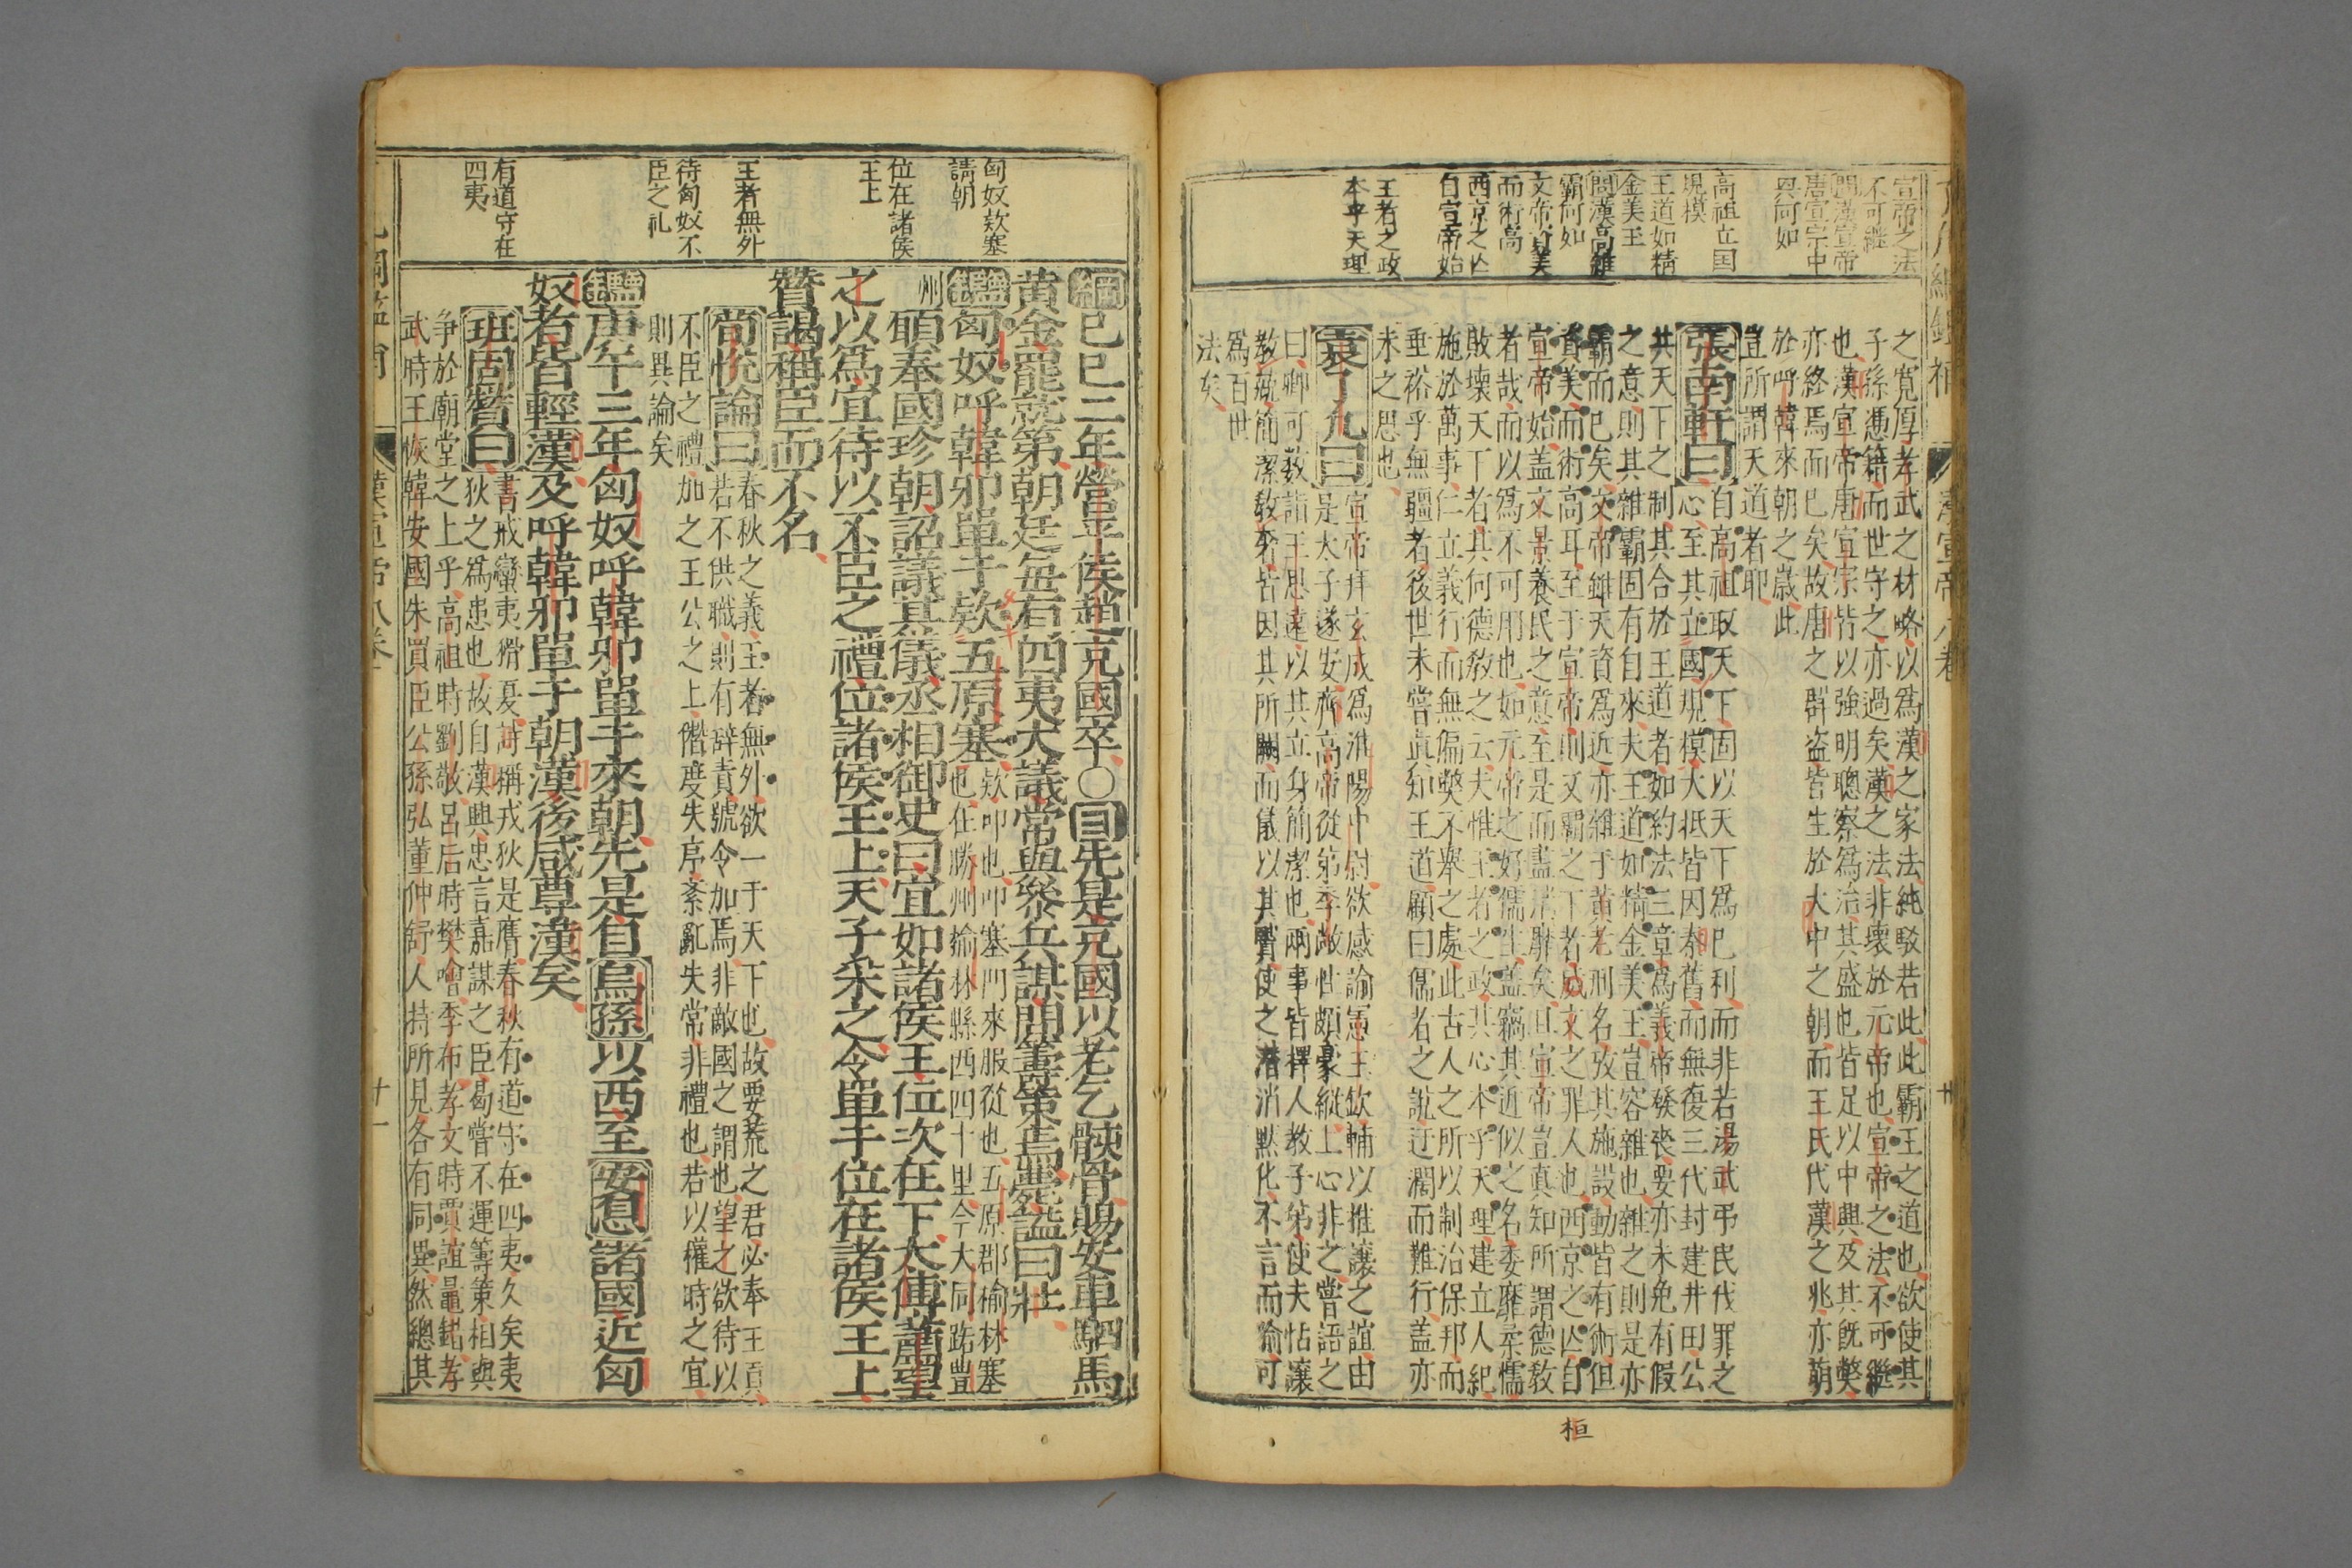 宣帝之法
不可繼
問漢宣帝
唐宣宗中
興何如
高祖立国
規模
王道如精
金美玉
問漢高雜
霸何如
文帝資美
而術高
西京之亡
自宣帝始
王者之政
本乎天理
之寬厚孝武之材略以爲漢之家法純駁若此此霸王之道也欲使其
子孫憑籍而世守之亦過矣漢之法非壞於元帝也宣帝之法不可繼
也漢宣帝唐宣宗皆以強明聰察爲治其盛也皆足以中興及其既弊
亦終焉而已矣故唐之群盗皆生於大中之朝而王氏代漢之兆亦萌
於呼韓來朝之歲此
豈所謂天道者耶
張南軒曰自高祖取天下固以天下爲己利而非若湯武弔民伐罪之
心至其立國規模大抵皆因秦舊而無復三代封建井田公
共天下之制其合於王道者如約法三章爲義帝發喪要亦未免有假
之意則其雜霸固有自來夫王道如精金美玉豈容雜也雜之則是亦
霸而已矣文帝雖天資爲近亦雜于黃老刑名攷其施設動皆有術但
資美而術高耳至于宣帝則文霸之下者成文之罪人也西京之亡自
宣帝始盖文景養民之意至是而盡消靡矣且宣帝豈真知所謂德教
者哉而以爲不可用也如元帝之好儒生盖竊其近似之名委靡柔懦
敗壞天下者其何德教之云夫惟王者之政其心本乎天理建立人紀
施於萬事仁立義行而無偏弊不舉之處此古人之所以制治保邦而
垂裕乎無疆者後世未嘗真知王道顧曰儒者之說迂濶而難行盖亦
未之思也
袁了凡曰宣帝拜玄成爲淮陽中尉欲感諭憲王欽輔以推讓之誼由
是太子遂安齊高帝從第季敞性頗豪縱上心非之嘗語之
曰卿可數詣王思遠以其立身簡潔也兩事皆擇人教子第使夫怙讓
教縱簡潔教奢皆因其所闕而儀以其賢使之潜消默化不言而諭可
爲百世
法矣
漢宣帝八卷
廿
桓
匈奴欵塞
請朝
位在諸侯
王上
王者無外
待匈奴不
臣之礼
有道守在
四夷
綱己巳二年營平侯趙充國卒○目先是充國以老乞骸骨賜安車駟馬
黃金罷就第朝廷每有四夷大議常與參兵謀問籌策焉薨諡曰壯
鑑匈奴呼韓邪單于欵五原塞欵叩也叩塞門來服從也五原郡榆林塞
也在勝州榆林縣西四十里今大同路豐
州願奉國珍朝詔議其儀丞相御史曰宜如諸侯王位次在下太傅蕭望
之以爲宜待以不臣之禮位諸侯王上天子采之令單于位在諸侯王上
贊謁稱臣而不名
荀悅論曰春秋之義王者無外欲一于天下也故要荒之君必奉王貢
若不供職則有辞責號令加焉非敵國之謂也望之欲待以
不臣之禮加之王公之上僭度失序紊亂失常非禮也若以權時之宜
則異論矣
鑑庚午三年匈奴呼韓邪單于來朝先是自烏孫以西至安息諸國近匈
奴者皆輕漢及呼韓邪單于朝漢後咸尊漢矣
班固贊曰書戒蠻夷猾夏詩稱戎狄是膺春秋有道守在四夷久矣夷
狄之爲患也故自漢興忠言嘉謀之臣曷嘗不運籌策相與
争於廟堂之上乎高祖時劉敬呂后時樊噲季布孝文時賈誼鼂錯孝
武時王恢韓安國朱買臣公孫弘董仲舒人持所見各有同異然總其
漢宣帝八卷
廿一